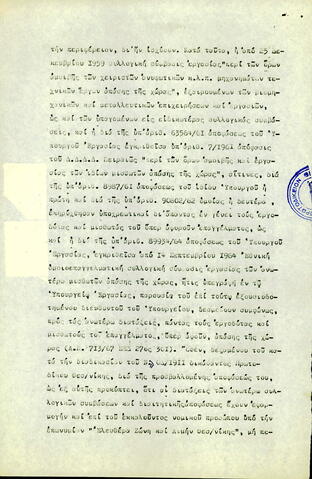 τήν περιφέρειαν, δι'ἥν ἰσχύουν. Κατά ταῦτα, ἡ ἀπό 25 Δε-
κεμβρίου 1959 συλλογική σύμβασις ἐργασίας "περί τῶν ὅρων
ἀμοιβῆς τῶν χειριστῶν κ.λ.π. μηχανημάτων
τεχνικῶν ἔργων ἁπάσης τῆς χώρας", ἐξαιρουμένων τῶν βιομη-
χανικῶν καί μεταλλευτικῶν ἐπιχειρήσεων καί ἐργασιῶν,
ὡς καί τῶν ὑπαγομένων εἰς εἰδικωτέρας συλλογικάς συμβά-
σεις, καί ἡ διά τῆς ὑπ'ἀριθ. 63564/61 ἀποφάσεως τοῦ Ὑ-
πουργοῦ Ἐργασίας ἐγκριθεῖσα ὑπ'ἀριθ. 7/1961 ἀπόφασις
τοῦ Δ.Δ.Δ.Δ. Πειραιῶς "περί τῶν ὅρων ἀμοιβῆς καί ἐργα-
σίας τῶν ἰδίων μισθωτῶν ἁπάσης τῆς χώρας", αἵτινες, διά
τῆς ὑπ'ἀριθ. 8987/61 ἀποφάσεως τοῦ ἰδίου Ὑπουργοῦ ἡ
πρώτη καί διά τῆς ὑπ'ἀριθ. 90862/62 ὁμοίας ἡ δευτέρα,
ἐκηρύχθησαν ὑποχρεωτικαί δι'ἅπαντας ἐν γένει τούς ἐργο-
δότας καί μισθωτούς τοῦ ὑπερ ἀφοροῦν ἐπαγγέλματος, ὡς
καί ἡ διά τῆς ὑπ'ἀριθ. 89934/64 ἀποφάσεως τοῦ Ὑπουργοῦ
Ἐργασίας, ἐγκριθεῖσα ἀπό 14 Σεπτεμβρίου 1964 "Ἐθνική
ὁμοιοεπαγγελματική συλλογική σύμβασις ἐργασίας τῶν ἀνω-
τέρω μισθωτῶν ἁπάσης τῆς χώρας, ἥτις ὑπεγράφη ἐν τῷ
Ὑπουργείῳ Ἐργασίας, παρουσίᾳ τοῦ ἐπί τούτῳ ἐξουσιοδο-
τημένου διευθυντοῦ τοῦ Ὑπουργείου, δεσμεύουν συμφώνως,
πρός τάς ἀνωτέρω διατάξεις, πάντας τούς ἐργοδότας καί
μισθωτούς τοῦ ἐπαγγέλματος, ὅπερ ἀφοροῦν, ἁπάσης τῆς
χώρας (Α.Π. 713/67 ΕΕΔ 27ος 301). Ὅθεν, δεχομένου τοῦ κα-
τά τήν διαδικασίαν τοῦ δικάσαντος Πρωτο-
δίκου Θεσ/νίκης, διά τῆς προσβαλλομένης ἀποφάσεώς του,
ὡς ἐξ αὐτῆς προκύπτει, ὅτι αἱ διατάξεις τῶν ἀνωτέρω συλ-
λογικῶν συμβάσεων καί διαιτητικῆςἀποφάσεως ἔχουν ἐφαρ-
μογήν καί ἐπί τοῦ ἐκκαλοῦντος νομικοῦ προσώπου ὑπό τήν
ἐπωνυμίαν "Ἐλευθέρα Ζώνη καί Λιμήν Θεσ/νίκης", μή πε-